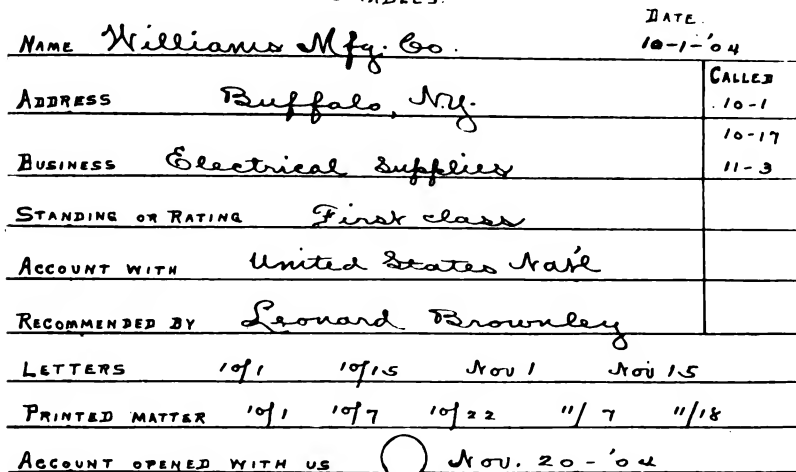 DATE.
NAME Williams Mfg. Co. 10-1-'04
CALLED
ADDRESS Buffalo, N.Y. 10-1
10-17
BUSINESS Electrical Supplies 11-3
STANDING OR RATING First class
ACCOUNT WITH United States Na't'l
RECOMMENDED BY Leonard Brownley
LETTERS 10/1 10/15 Nov 1 Nov 15
PRINTED MATTER 10/1 10/7 10/22 11/7 11/18
ACCOUNT OPENED WITH US Nov. 20-'04